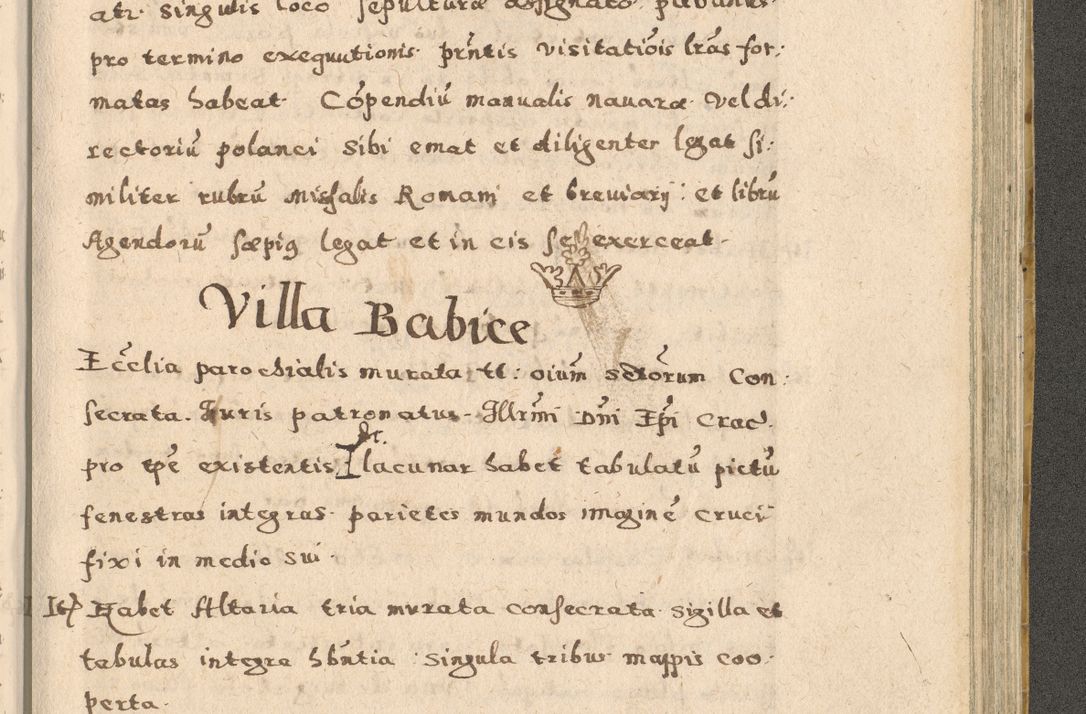 atr singulis loco sepulturæ assignato
pro termino exequutionis pñtis visitatiois lrãs for:
matas habeat Cõpendiũ manualis nauaræ vel di:
rectoriũ polanci sibi emat et diligenter legat si:
militer rubrũ missalis Romanj et breviarij: et librũ
Agendorũ sæpiꝰ legat et in eis se exerceat.
Villa Babice
Ecc̃lia parochialis murata tt: oiũm sctõrum Con:
secrata. Juris patronatus Illrm̃i Dñi Ep̃i Crac.
pro tpẽ existentis et lacunar habet tabulatũ pictũ
fenestras integras parietes mundos imaginẽ Cruci
fixi in medio sui
It Habet Altaria tria murata consecrata sigilla et
tabulas integra hñtia singula tribus mappis coo
perta.